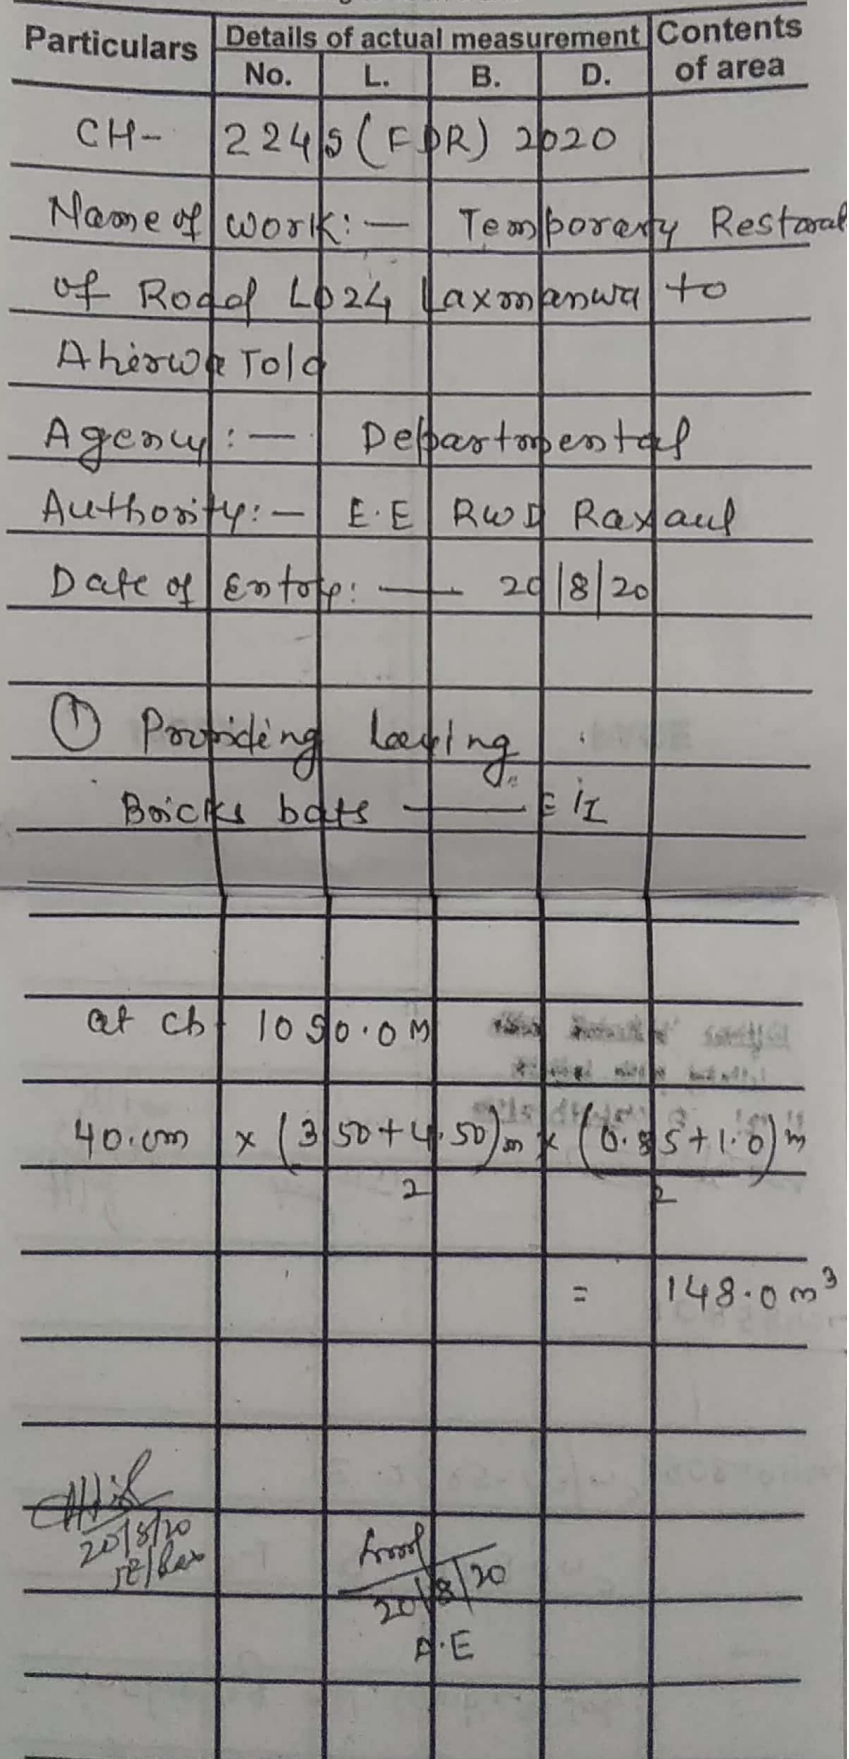 Particulars Details of actual measurement Contents of area
No. L. B. D.
CH- 2245 (FDR) 2020
Name of work:- Temporary Restoral
of Road L024 Laxmanwa to
Ahirwa Tola
Agency:- Departmental
Authority:- E.E RWD Raxaul
Date of Entry:- 20/8/20
① Providing laying
Bricks bats —— E/I
at ch 1090.0 M
40.0m x (3.50+4.50)m x (0.85+1.0)m
2 2
= 148.0 m³
20/8/20
JE/Rax
20/8/20
A.E